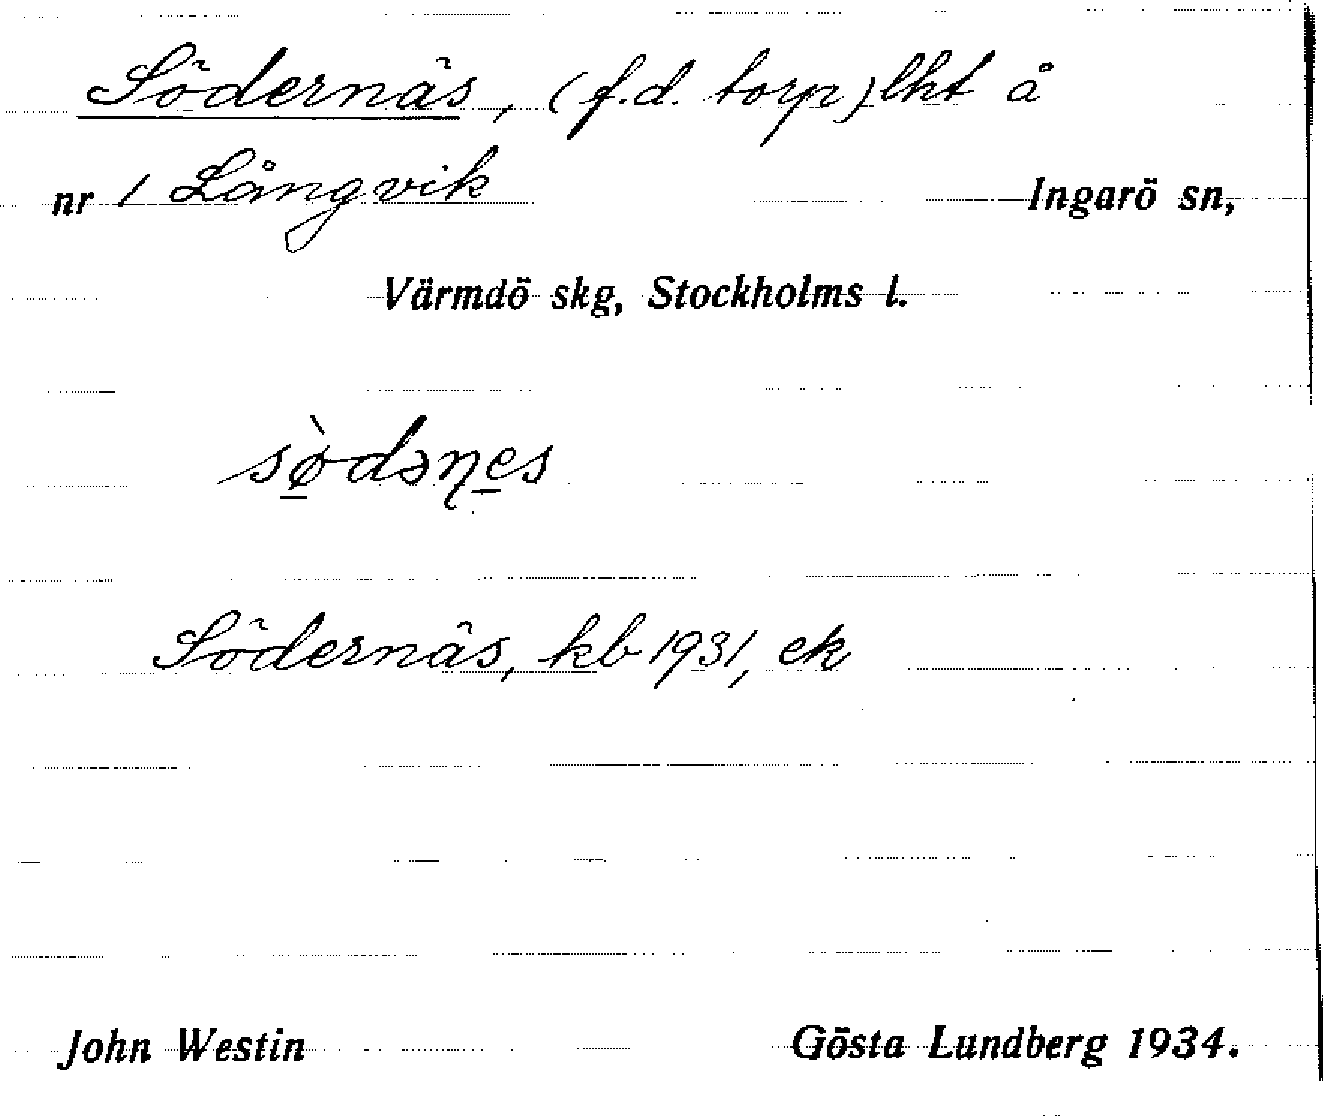 Södernäs, (f.d. torp) lht å
nr 1 Långvik Ingarö sn,
Värmdö skg, Stockholms l.
sø̠̀dəɳe̠s
Södernäs, kb 1931, ek
John Westin Gösta Lundberg 1934.